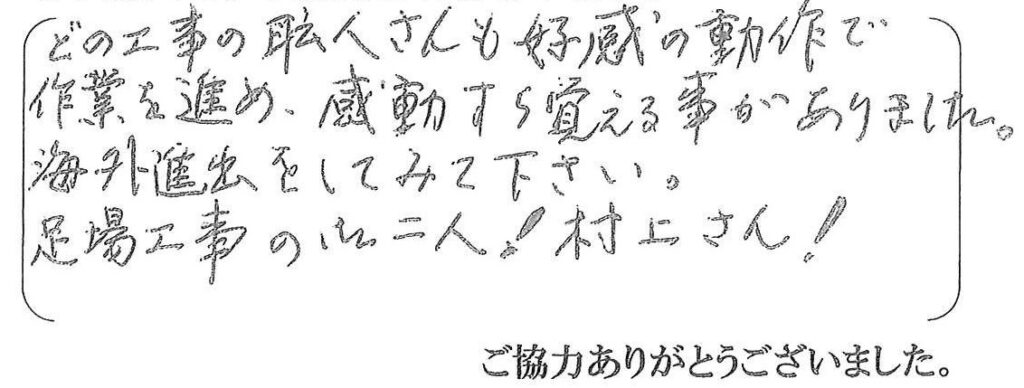 どの工事の職人さんも好感の動作で
作業を進め、感動すら覚える事がありました。
海外進出をしてみて下さい。
足場工事のお二人!村上さん!
ご協力ありがとうございました。